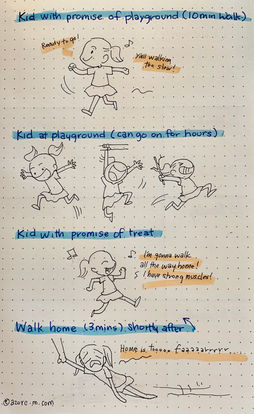 Kid with promise of playground (10min walk)
Ready to go!
Kid at playground (can go on for hours)
Kid with promise of treat
I'm gonna walk
all the way home!
I have strong muscles!
Walk home (3mins) shortly after
Home is tooooo faaaaarrrrr...